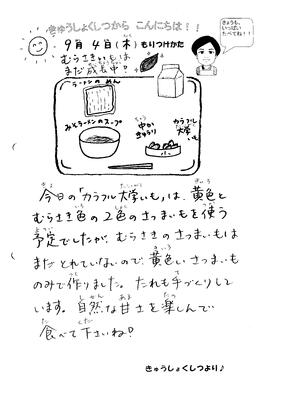 きゅうしょくしつから こんにちは！！
きょうも、
いっぱい
たべてね！！
9月 4日(木) もりつけかた
むらさきいもは
まだ成長中？
ラーメンの めん
みそラーメンのスープ
中か
きゅうり
カラフル
大学
いも
今日の「カラフル大学いも」は、黄色と
むらさき色の2色のさつまいもを使う
予定でしたが、むらさきのさつまいもは
まだとれていないので、黄色いさつまいも
のみで作りました。たれも手づくりして
います。自然な甘さを楽しんで
食べて下さいね！
きゅうしょくしつより♪